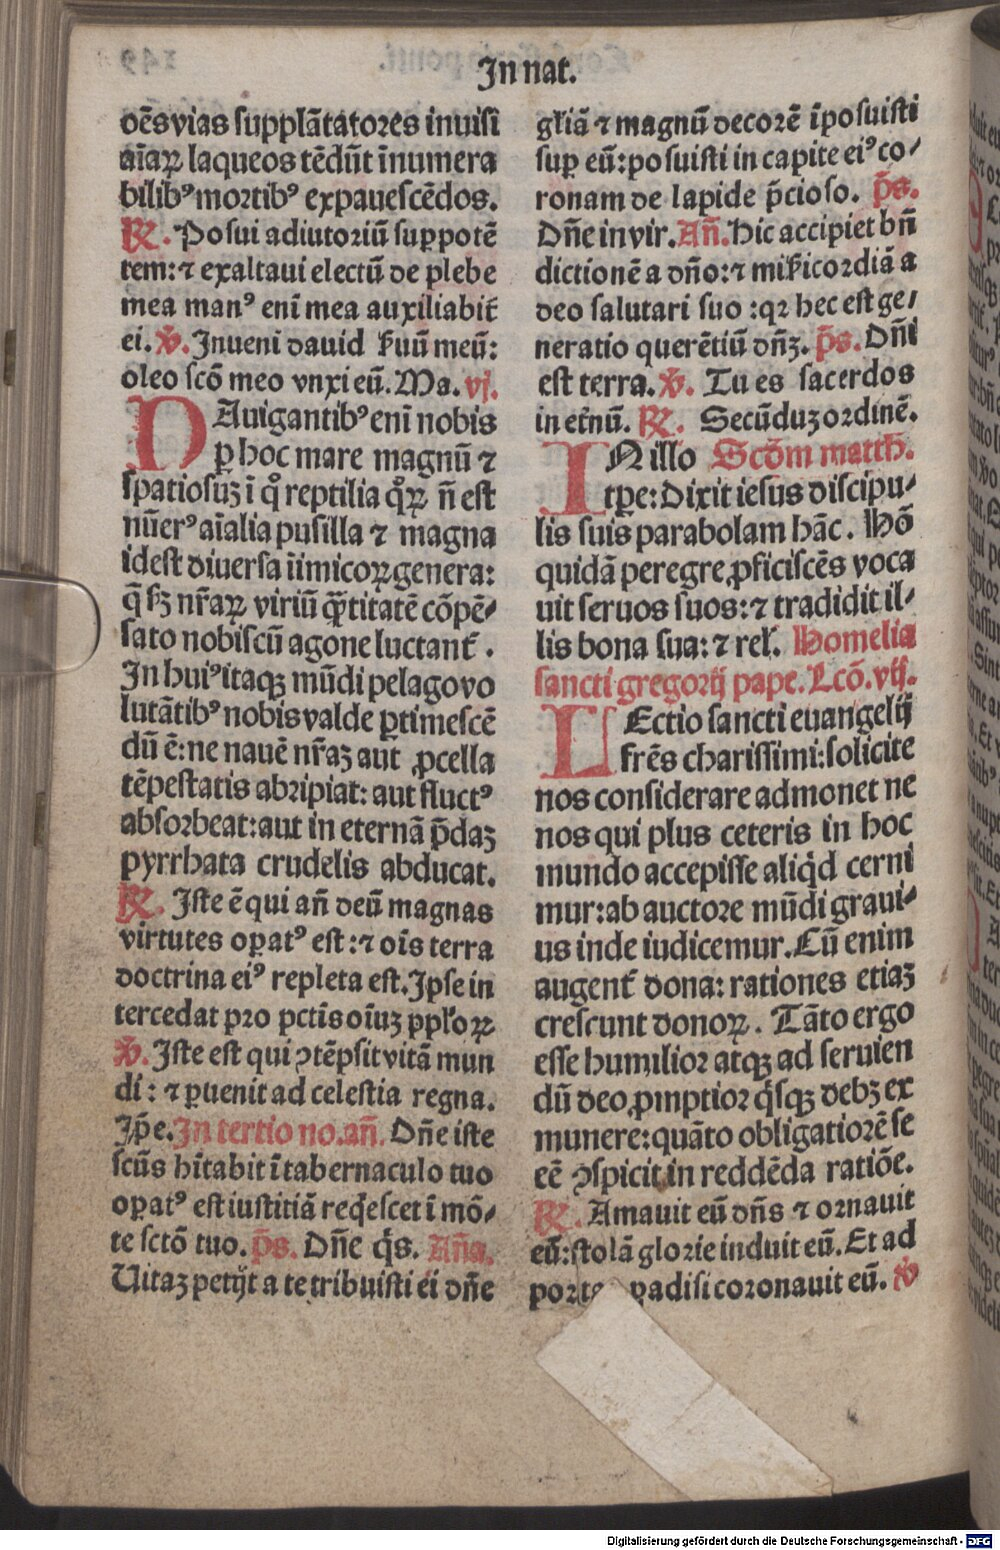 In nat.
oēs vias supplātatores inuisi
aīaꝝ laqueos tēdūt īnumera
bilibꝰ mortibꝰ expauescēdos.
℟. Posui adiutoriū suꝑ potē
tem: ⁊ exaltaui electū de plebe
mea manꝰ enī mea auxiliabit̄
ei. ℣. Inueni dauid ẜuū meū:
oleo scō meo vnxi eū. Ma. vj.
NAuigantibꝰ enī nobis
ꝑ hoc mare magnū ⁊
spatiosuꝫ ī q̊ reptilia qͦꝝ n̄ est
nūerꝰ aīalia pusilla ⁊ magna
idest diuersa iīmicoꝝ genera:
q̄ sꝫ nr̄aꝝ viriū q̄titatē cōpē⸗
sato nobiscū agone luctant̄.
In huiꝰ itaqꝫ mūdi pelago vo
lutātibꝰ nobis valde ꝑtimescē
dū ē: ne nauē nr̄aꝫ aut ꝓcella
tēpestatis abripiat: aut fluctꝰ
absorbeat: aut in eternā p̄daꝫ
pyrrhata crudelis abducat.
℟. Iste ē qui an̄ deū magnas
virtutes oꝑatꝰ est: ⁊ oīs terra
doctrina eiꝰ repleta est. Ipse in
tercedat pro pctīs oīuꝫ ppl'oꝝ
℣. Iste est qui ꝯtēpsit vitā mun
di: ⁊ ꝑuenit ad celestia regna.
Ip̄e. In tertio no. an̄. Dn̄e iste
scūs hītabit ī tabernaculo tuo
oꝑatꝰ est iustitiā reqͥescet ī mō⸗
te sctō tuo. p̄s. Dn̄e qͥs. Añā.
Uitaꝫ petijt a te tribuisti ei dn̄e
gl'iā ⁊ magnū decorē īposuisti
suꝑ eū: posuisti in capite eiꝰ co⸗
ronam de lapide p̄cioso. p̄s.
Dn̄e in vir. An̄. Hic accipiet bn̄
dictionē a dn̄o: ⁊ mīẜicordiā a
deo salutari suo: qꝛ hec est ge⸗
neratio querētiū dn̄ꝫ. p̄s. Dn̄i
est terra. ℣. Tu es sacerdos
in etn̄ū. ℟. Secūduꝫ ordinē.
IN illo Scd̄m matth̄.
tꝑe: Dixit iesus discipu⸗
lis suis parabolam hāc. Hō
quidā peregre ꝓficiscēs voca
uit seruos suos: ⁊ tradidit il⸗
lis bona sua: ⁊ rel'. Homelia
sancti gregorij pape. Lcō. vij.
LEctio sancti euangelij
frēs charissimi: solicite
nos considerare admonet ne
nos qui plus ceteris in hoc
mundo accepisse aliqͥd cerni
mur: ab auctore mūdi graui⸗
us inde iudicemur. Cū enim
augent̄ dona: rationes etiaꝫ
crescunt donoꝝ. Tāto ergo
esse humilior atqꝫ ad seruien
dū deo ꝓmptior qͥsqꝫ debꝫ ex
munere: quāto obligatiorē se
eē ꝯspicit in reddēda ratiōe.
℟. Amauit eū dn̄s ⁊ ornauit
eū: stolā glorie induit eū. Et ad
padisi coronauit eū. ℣
Digitalisierung gefördert durch die Deutsche Forschungsgemeinschaft - DFG